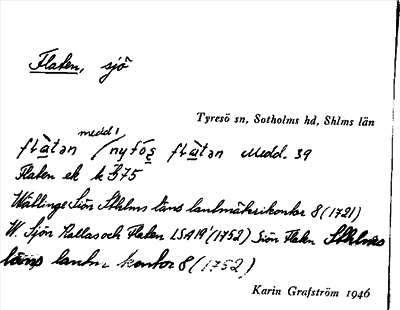 Flaten, sjö
Tyresö sn, Sotholms hd, Shlms län
medd1
flàtən / flàtən Medd. 39
Flaten ek k B75
Wällinge Siön Sthlms läns lantmäterikontor 8 (1721)
W. Sjön Kallas och Flaten LSA (1752) Siön Flaten Sthlms
läns lantm kontor 8 (1752)
Karin Grafström 1946